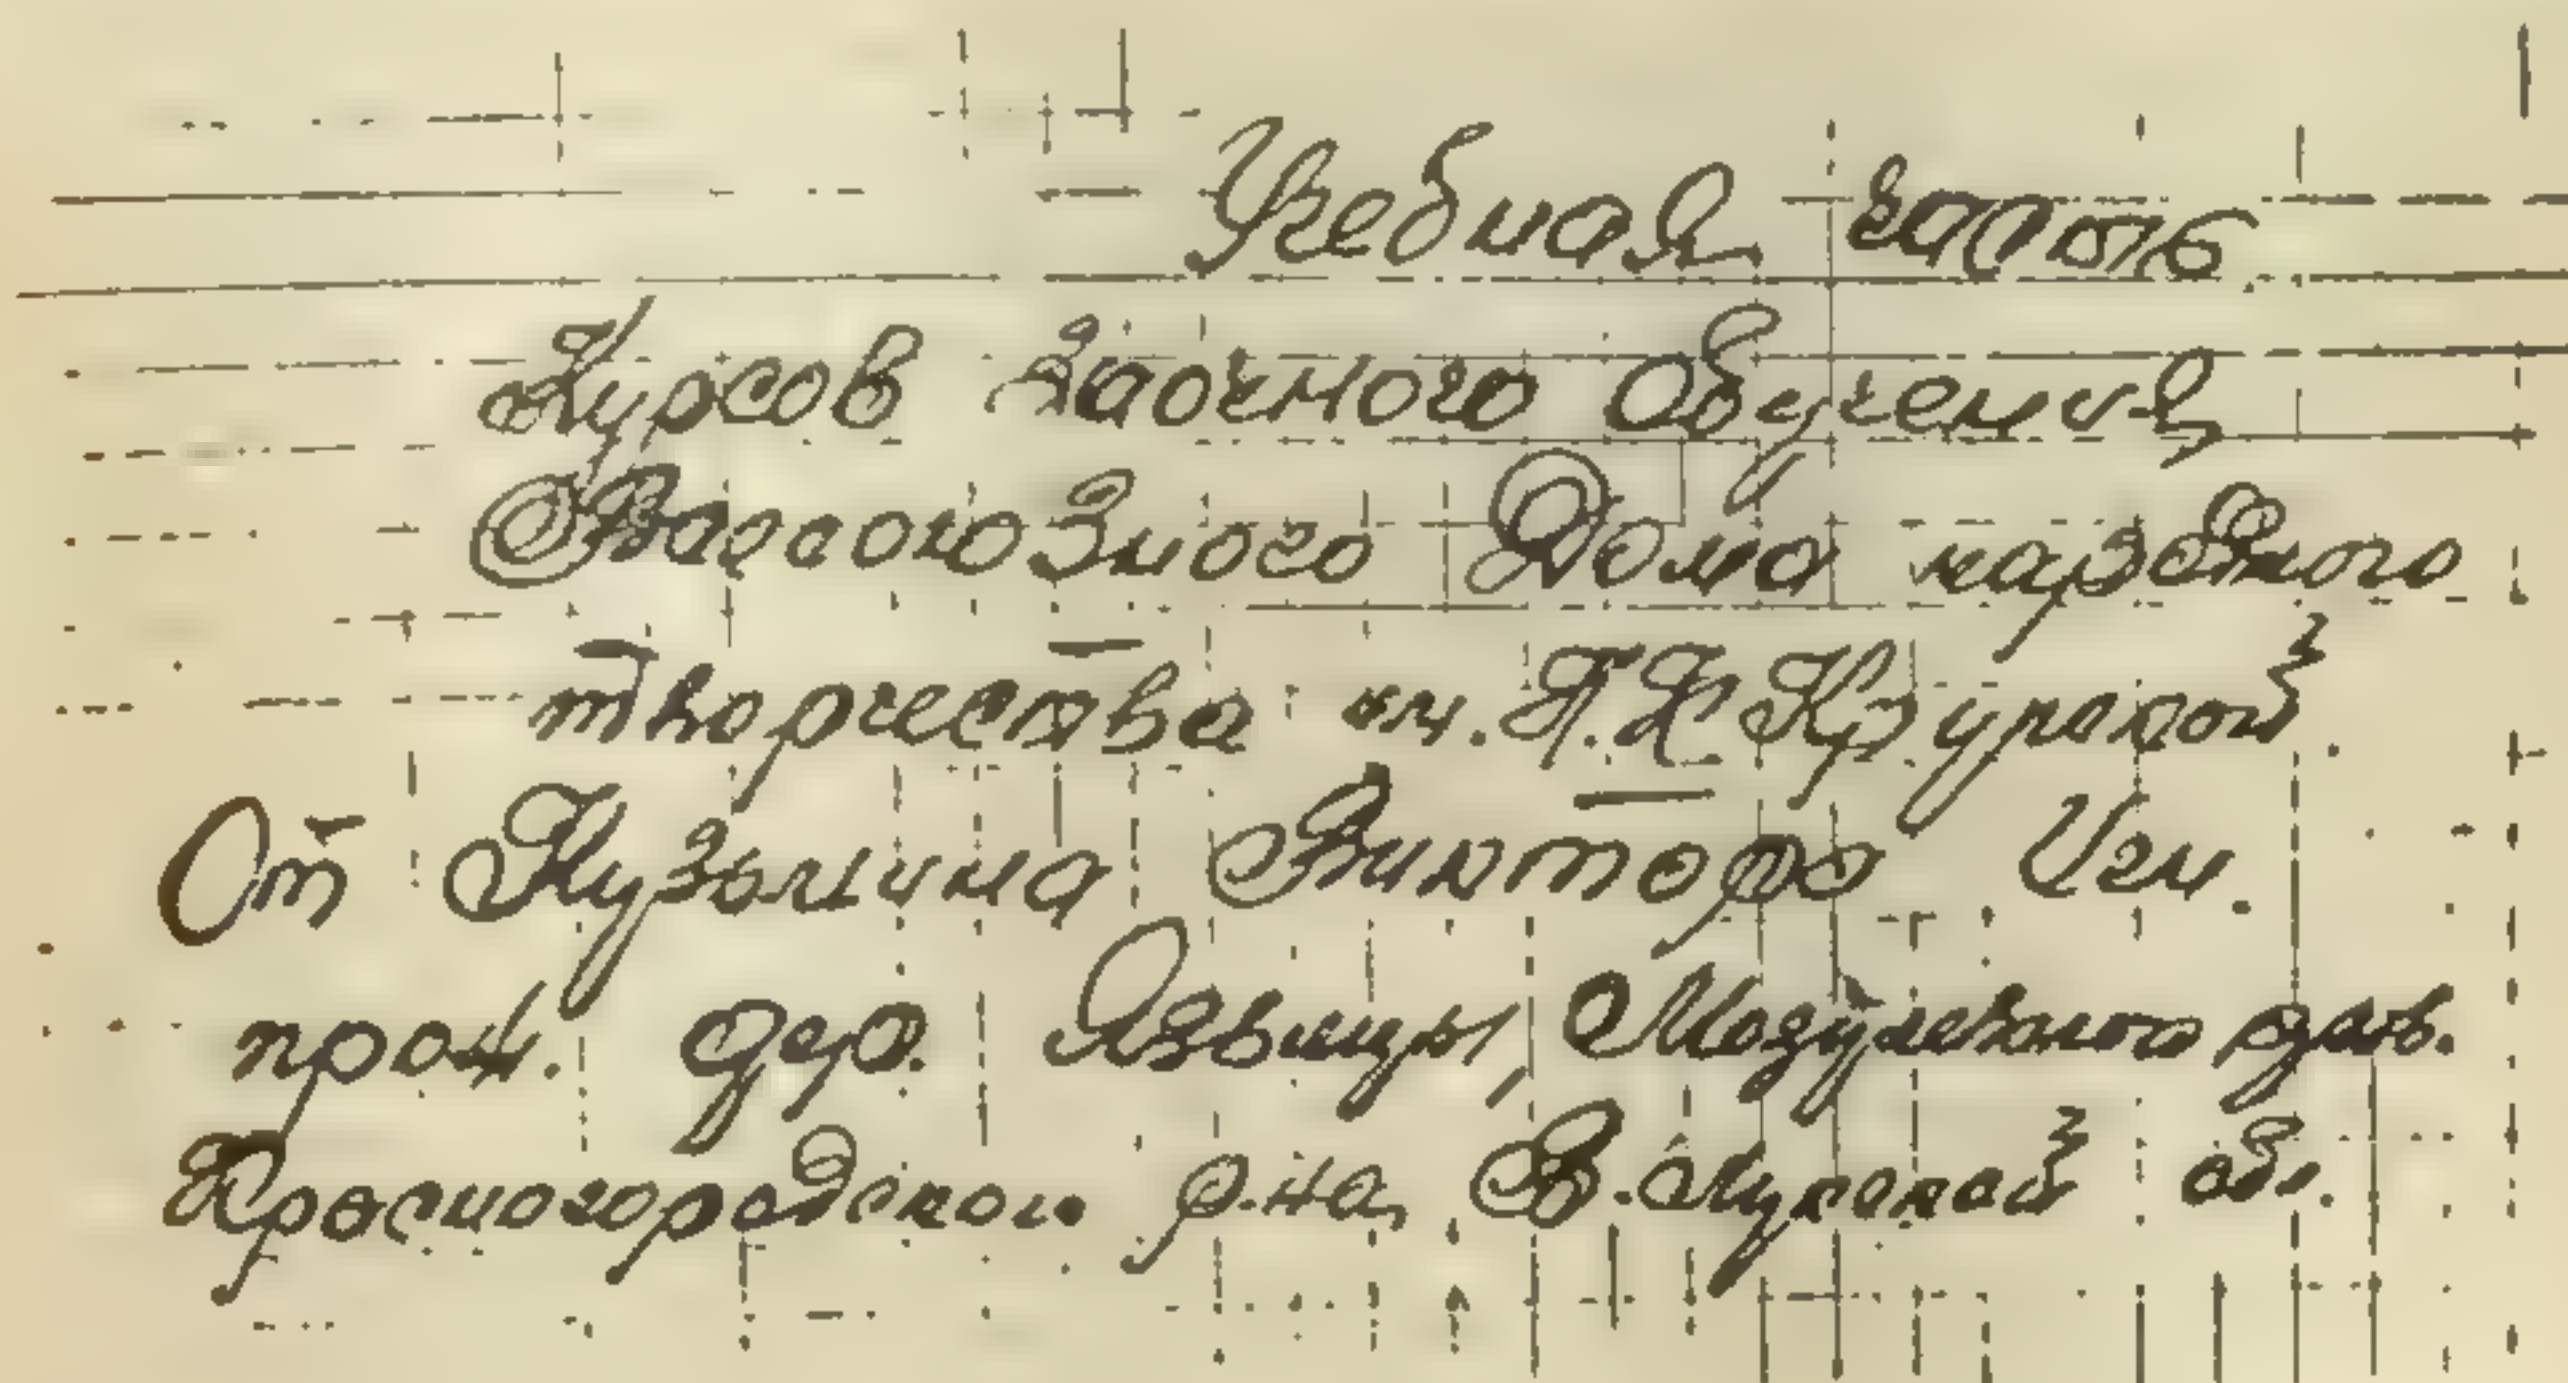 Учебная часть
Курсов Заочного Обучения
Всесоюзного Дома народного
творчества им. Н.К Крупской.
От Кузьмина Виктора Игн.
прож. дер. Язвицы,
Красногородского р-на, В.Лукской обл.